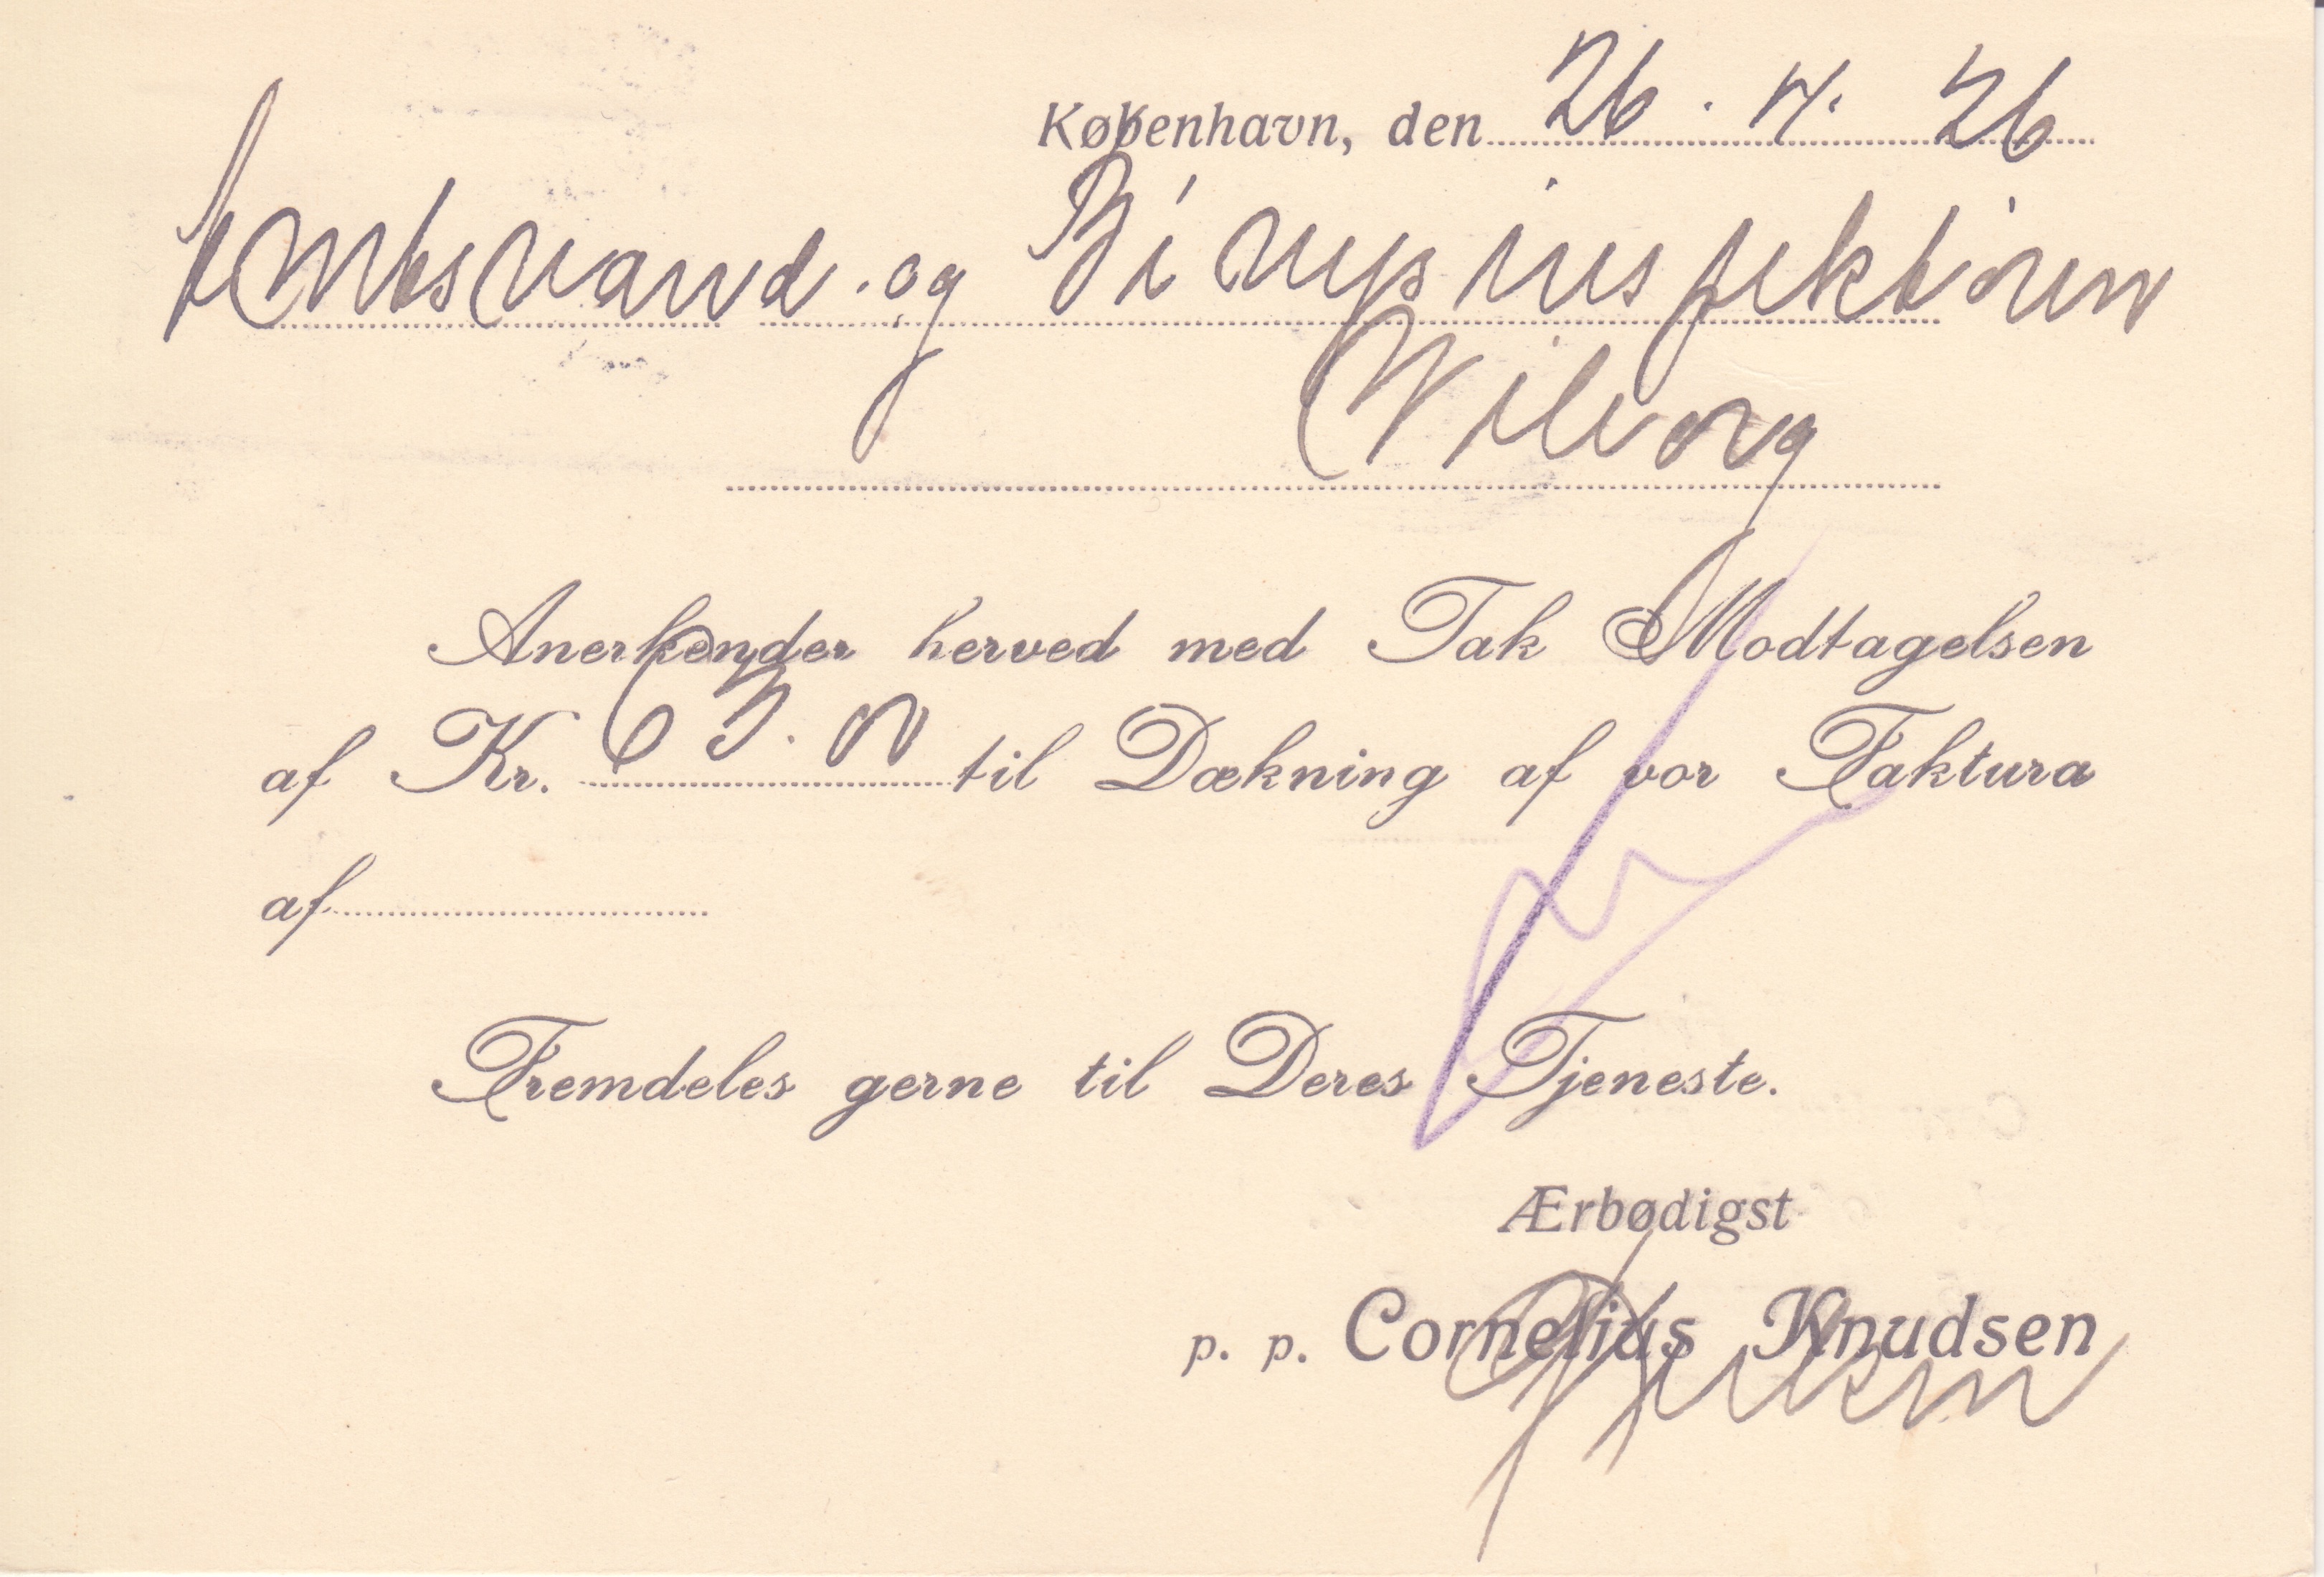 København, den 26. 4. 26
Amtsvand- og Bivejsinspektøren
Viborg
Anerkender herved med Tak Modtagelsen
af Kr. 63.00 til Dækning af vor Faktura
af
Fremdeles gerne til Deres Tjeneste.
Ærbødigst
p. p. Cornelius Knudsen